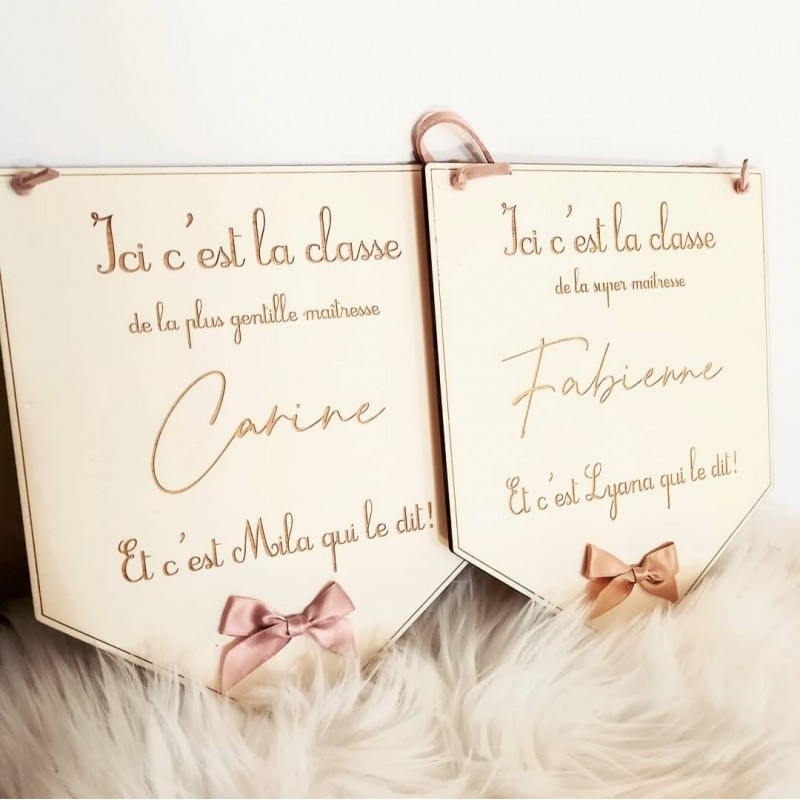 Ici c'est la classe
de la plus gentille maîtresse
Carine
Et c'est Mila qui le dit!
Ici c'est la classe
de la super maîtresse
Fabienne
Et c'est Lyana qui le dit!